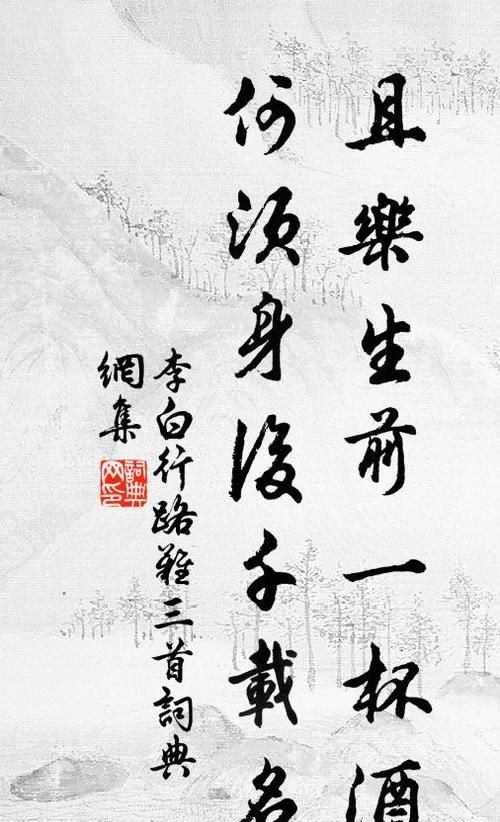 且樂生前一杯酒
何須身後千載名
李白行路難三首詞典
網集
詞典
网印